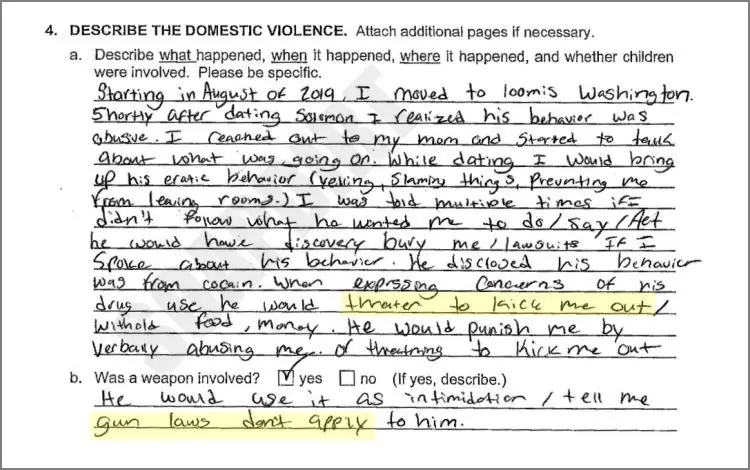 4. DESCRIBE THE DOMESTIC VIOLENCE. Attach additional pages if necessary.
a. Describe what happened, when it happened, where it happened, and whether children
were involved. Please be specific.
Starting in August of 2019, I moved to loomis Washington.
Shortly after dating Soloman I realized his behavior was
abusive. I reached out to my mom and started to talk
about what was going on. While dating I would bring
up his eratic behavior (yelling, slaming things, Prevunting me
from leaving rooms.) I was told multiple times if I
didn't follow what he wanted me to do/say/Act
he would have discovery bury me/lawsuits If I
Spoke about his behavior. He disclosed his behavior
was from cocain. When expressing concerns of his
drug use he would thraten to kick me out/
withold food, money. He would punish me by
verbaly abusing me. or threatning to kick me out
b. Was a weapon involved? yes no (If yes, describe.)
He would use it as intimidation / tell me
gun laws don't apply to him.